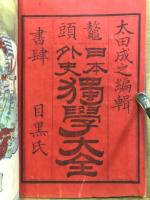 太田成之編輯
鼇頭
日本外史
獨學大全
書肆 目黒氏